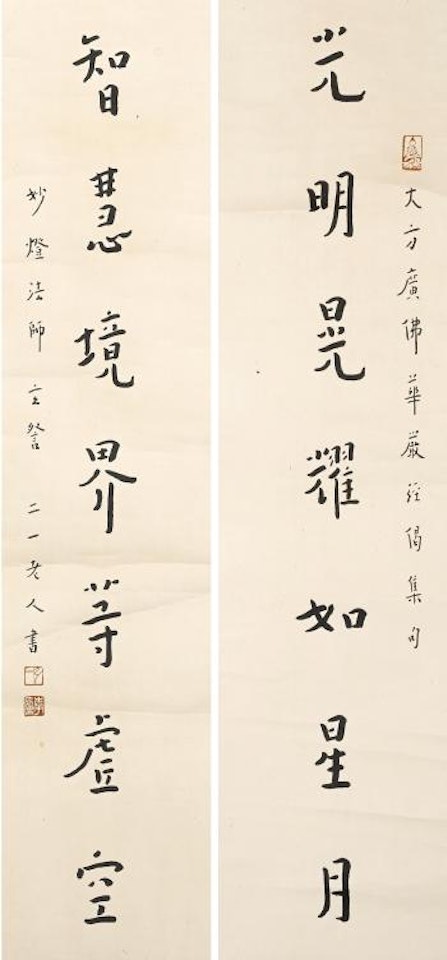 大方廣佛華嚴經偈集句
光明晃耀如星月
智慧境界等虛空
妙燈法師玄詧 二一老人書